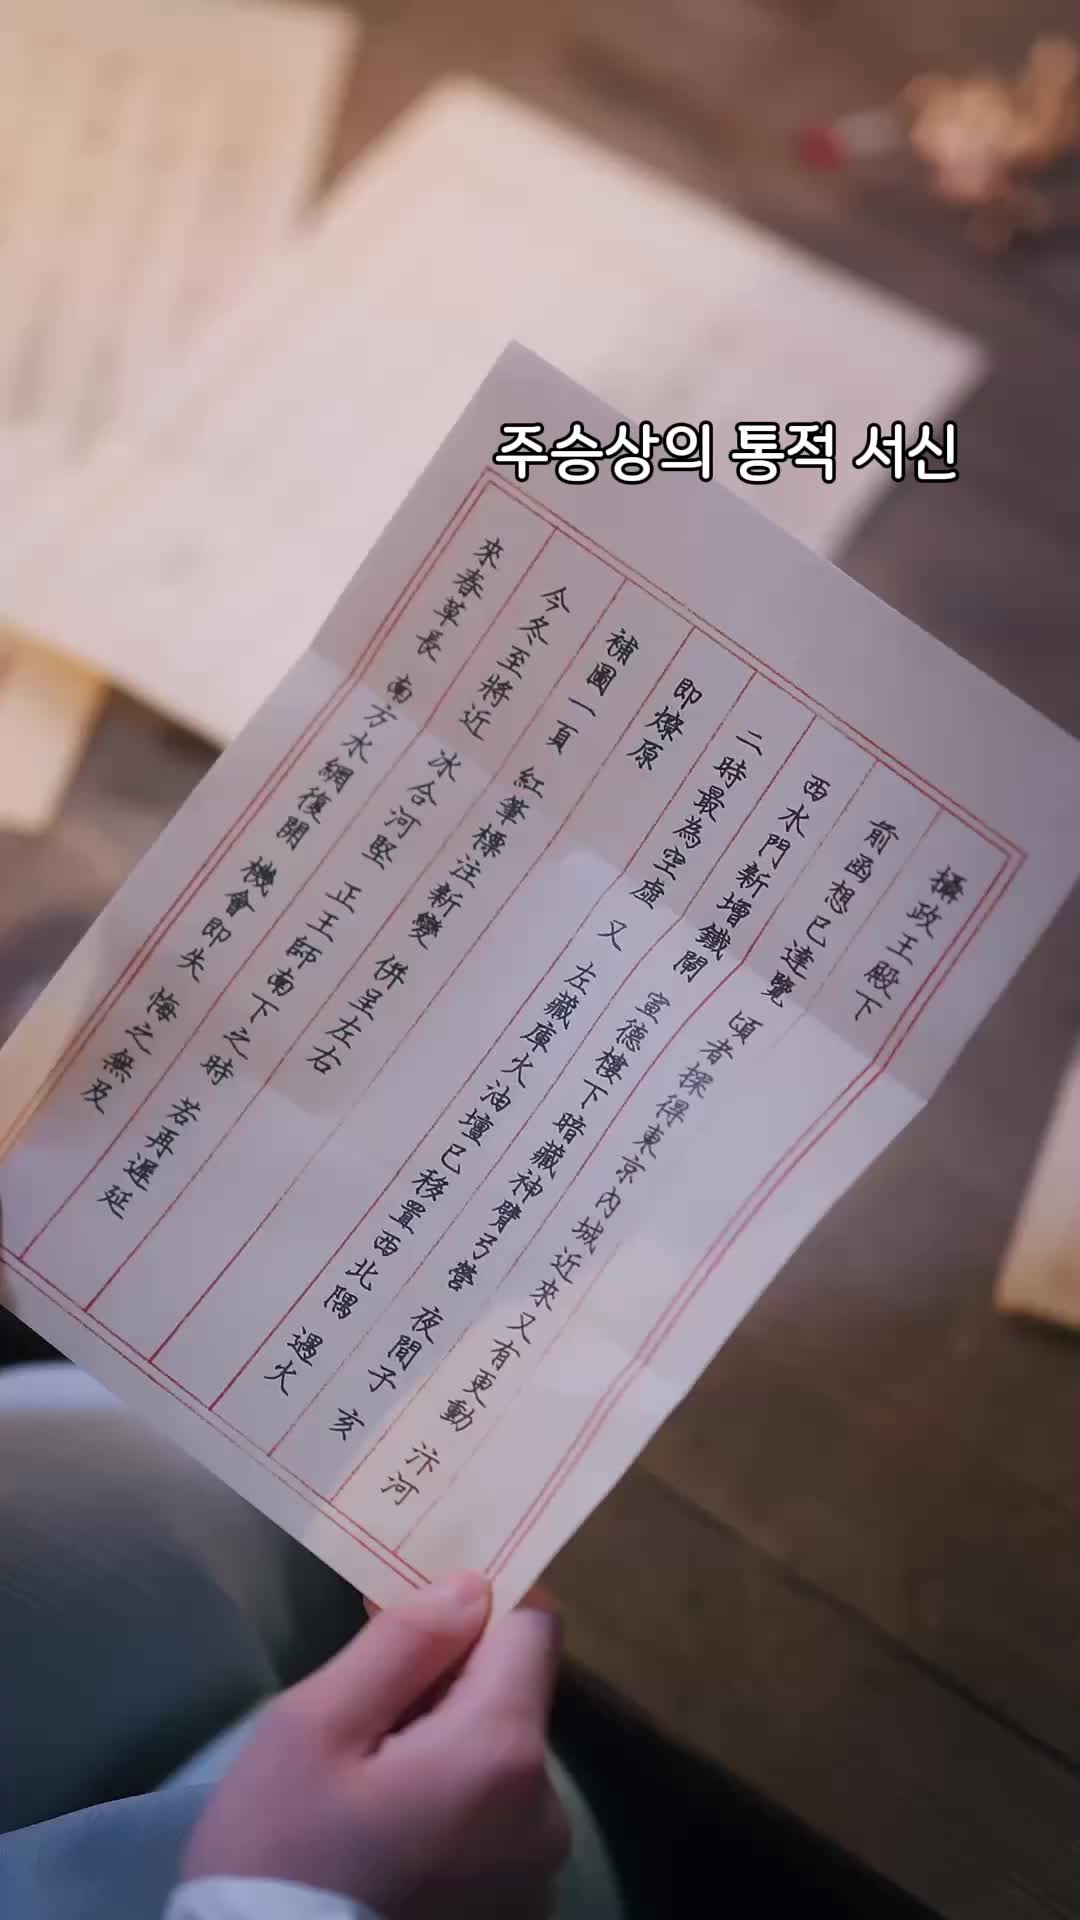 주승상의 통적 서신
攝政王殿下
前函想已達覽 頃者探得東京內城近來又有更動 汴河
西水門新增鐵閘 宣德樓下暗藏神臂弓營 夜間子 亥
二時最為空虛 又 左藏庫火油壇已移置西北隅 遇火
即燎原
補圖一頁 紅筆標注新變 併呈左右
今冬至將近 冰合河堅 正王師南下之時 若再遲延
來春草長 南方水網復開 機會即失 悔之無及